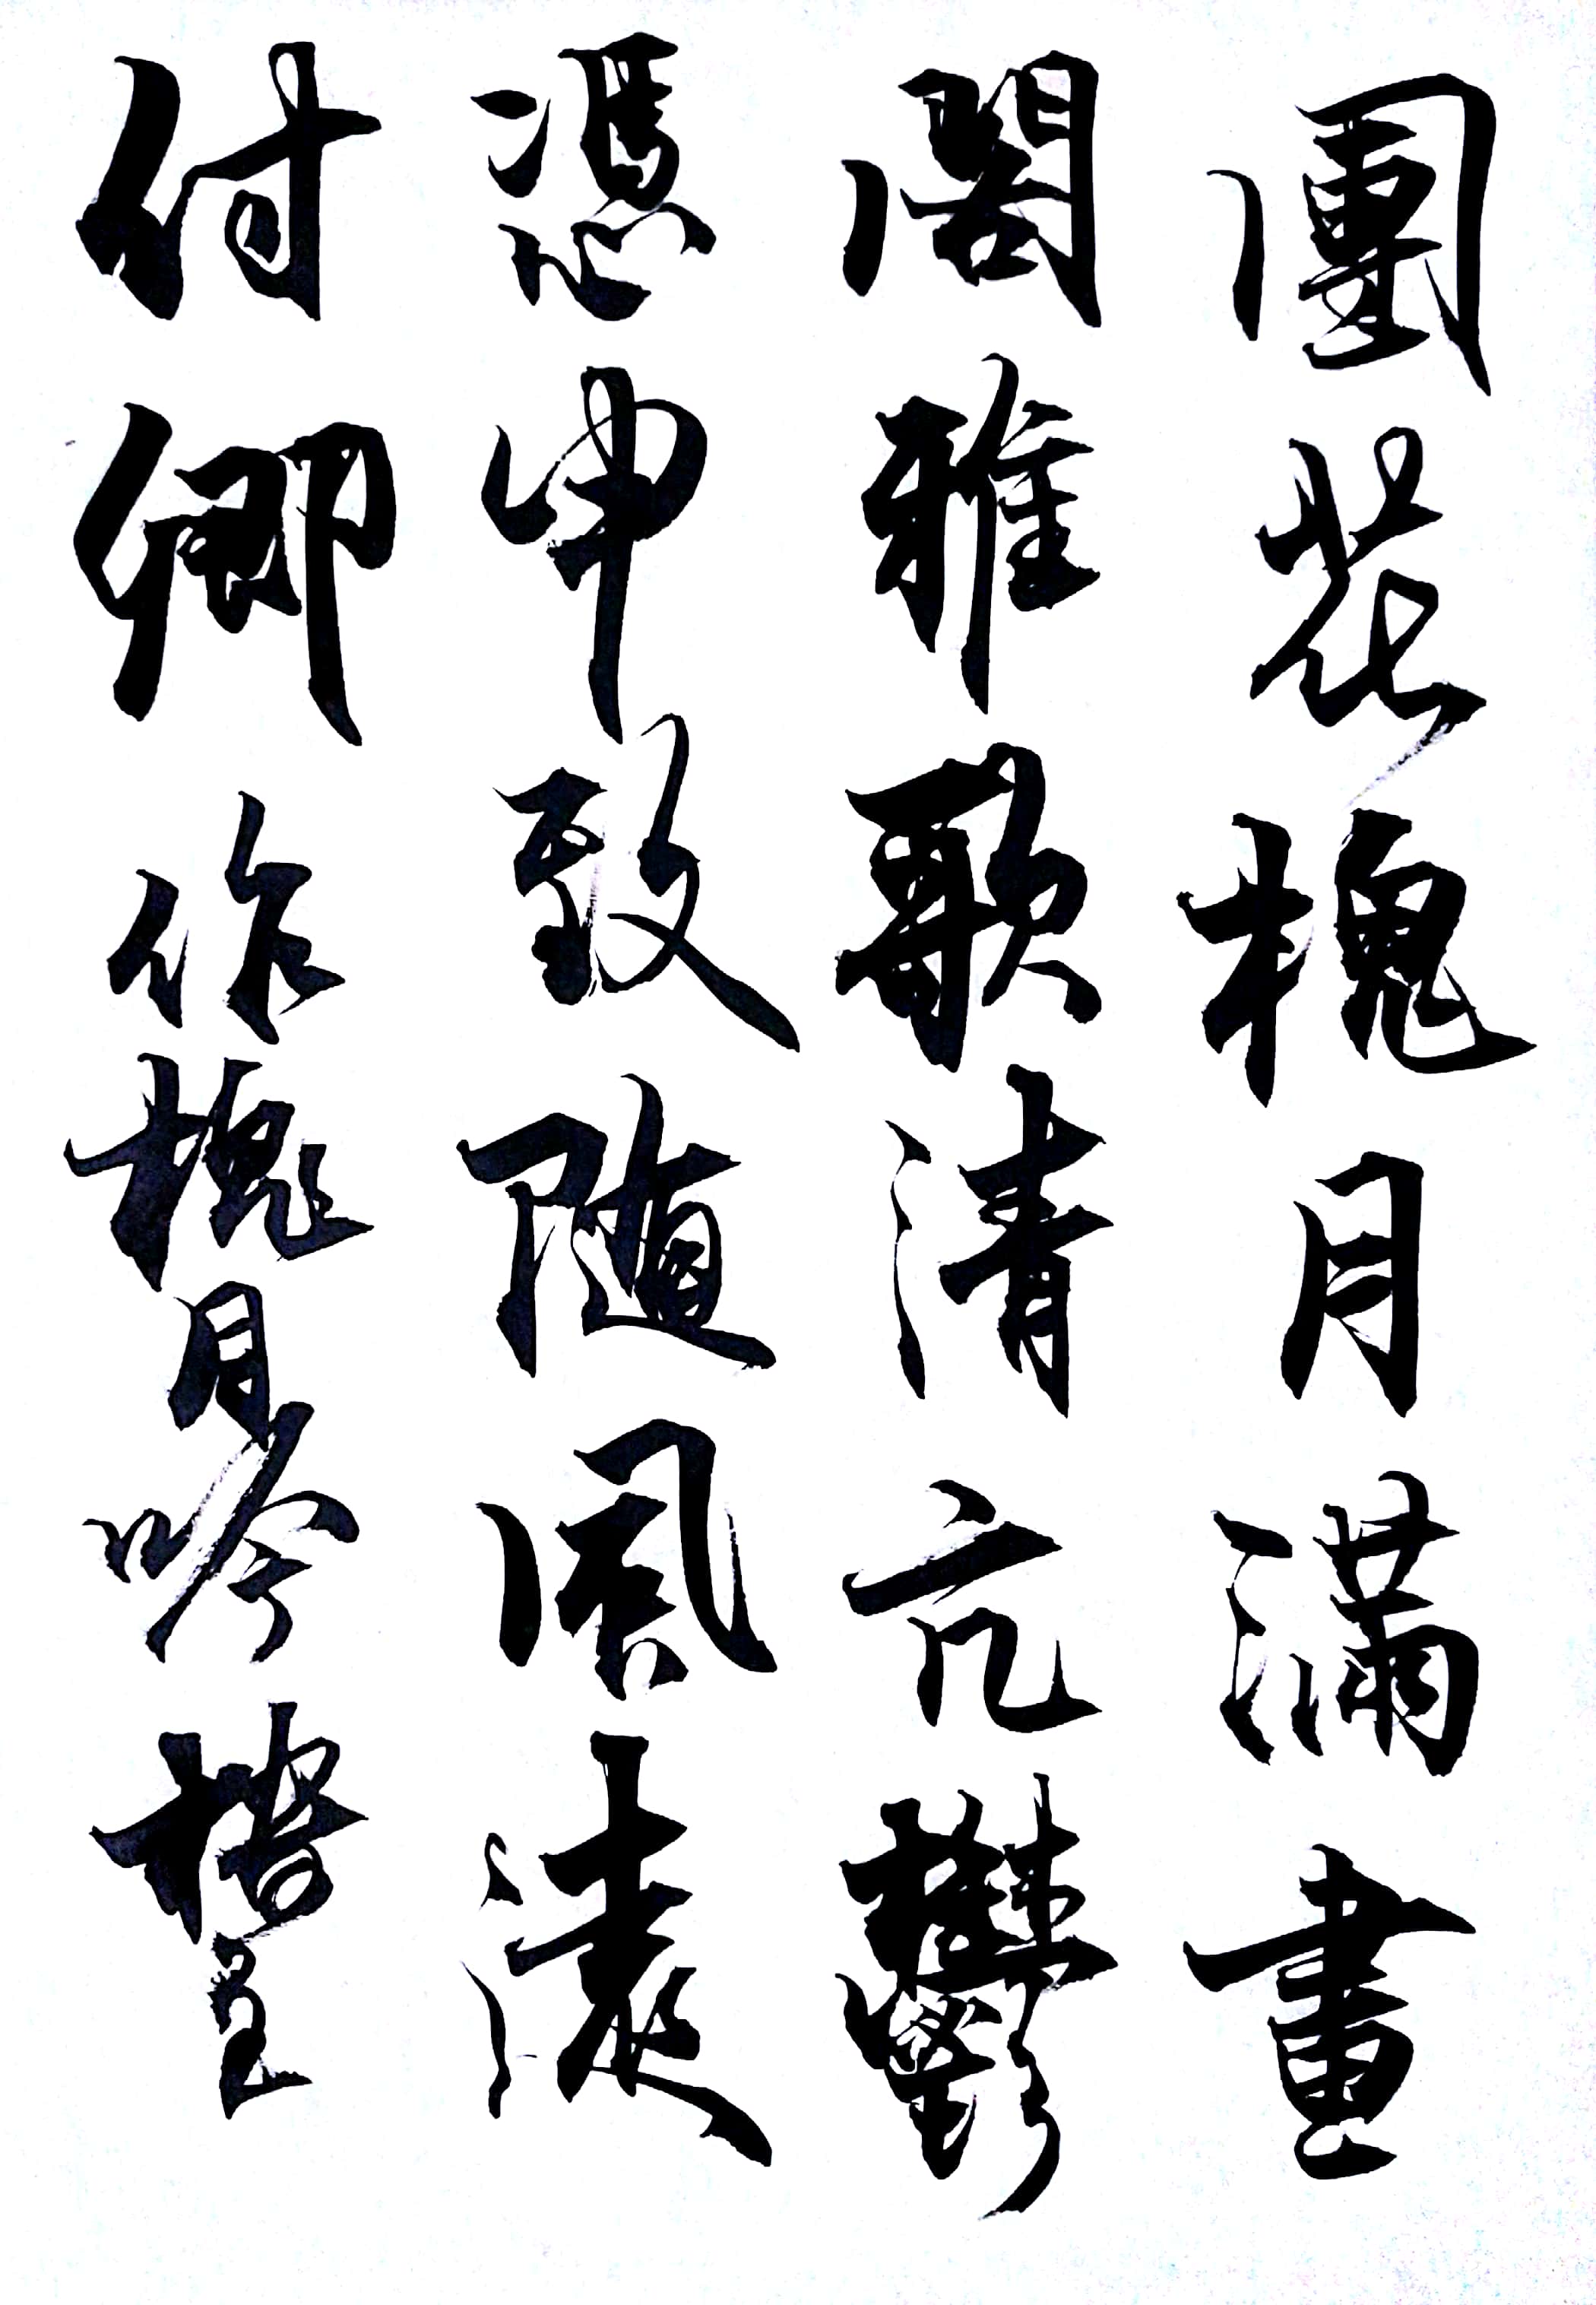 團花槐月滿畫
閣雅歌清亢鬱
憑申致随風遠
付卿作槐月吟